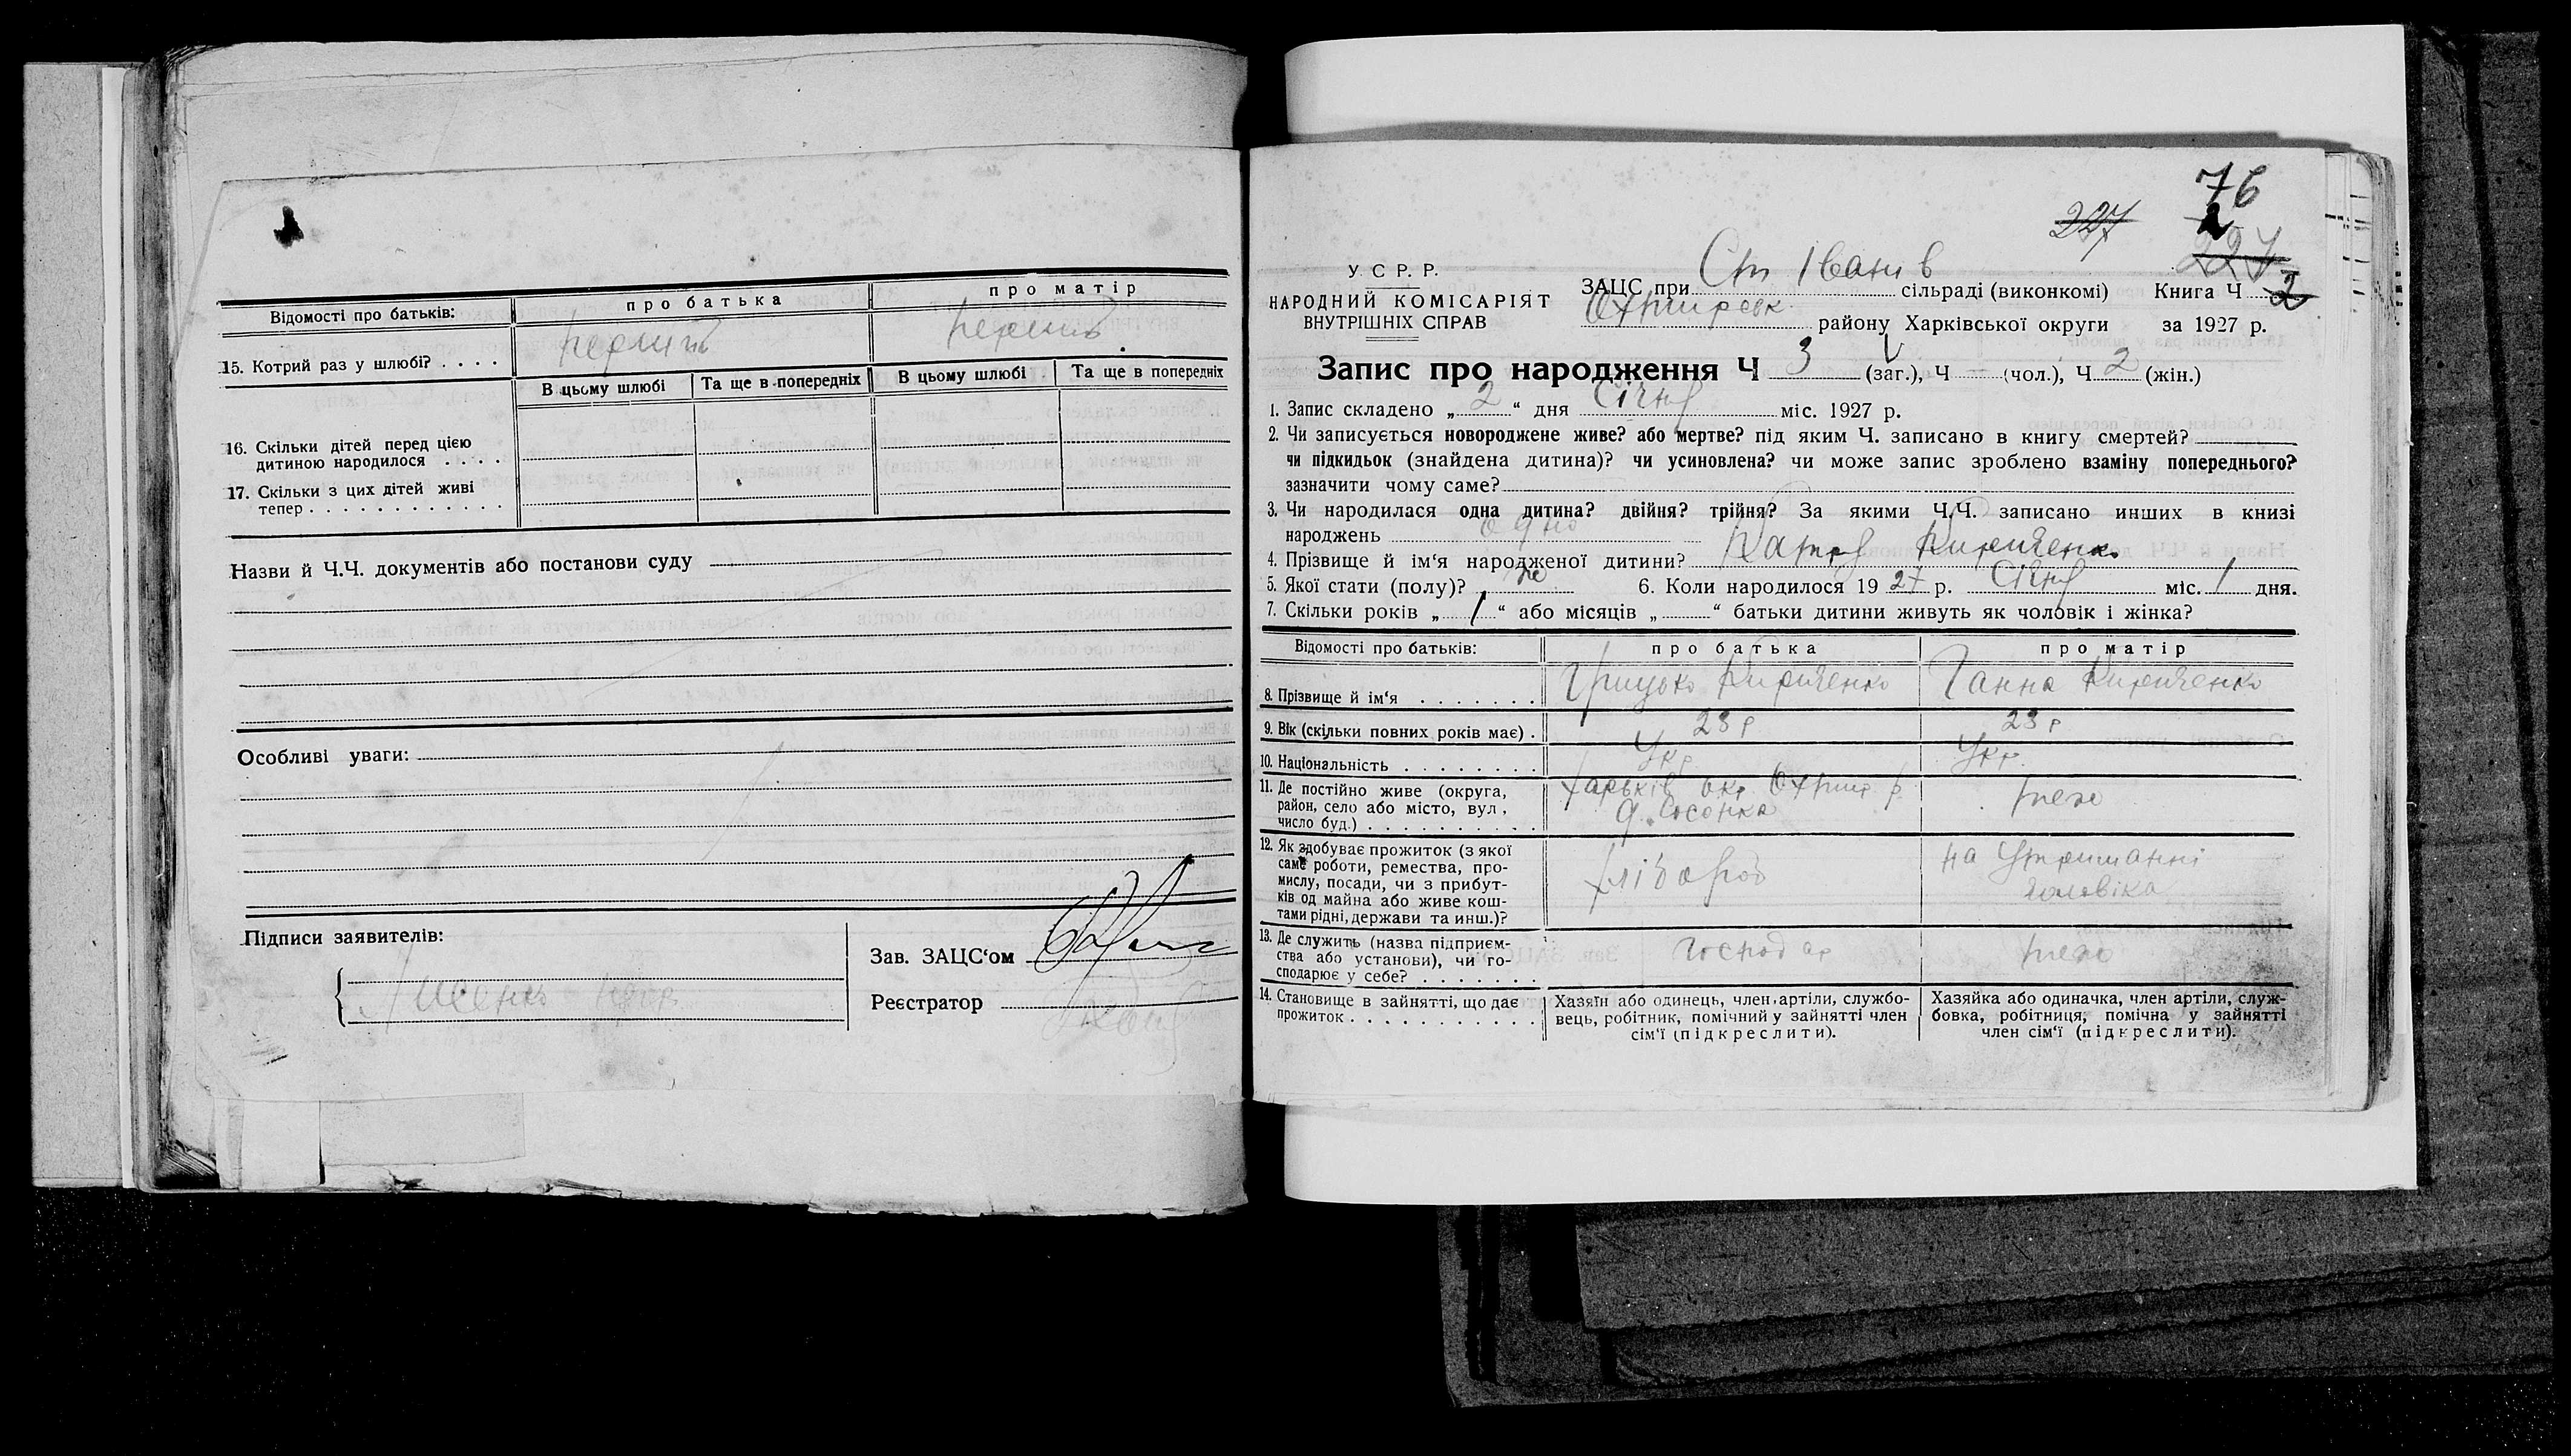 Відомості про батьків: про батька про матір
15. Котрий раз у шлюбі? . . . . перший перший
В цьому шлюбі Та ще в попередніх В цьому шлюбі Та ще в попередніх
16. Скільки дітей перед цією
дитиною народилося . . . .
17. Скільки з цих дітей живі
тепер . . . . . . . . . . . .
Назви й Ч.Ч. документів або постанови суду
Особливі уваги:
Підписи заявителів:
Зав. ЗАЦС‘ом
Реєстратор
76
2
227 227
У. С. Р. Р.
НАРОДНИЙ КОМІСАРІЯТ
ВНУТРІШНІХ СПРАВ
ЗАЦС при Ст Іванів сільраді (виконкомі) Книга Ч 2
Охтирськ району Харківської округи за 1927 р.
Запис про народження Ч 3 (заг.), Ч — (чол.), Ч. 2 (жін.)
1. Запис складено „ 2 “ дня Січня міс. 1927 р.
2. Чи записується новороджене живе? або мертве? під яким Ч. записано в книгу смертей?
чи підкидьок (знайдена дитина)? чи усиновлена? чи може запис зроблено взаміну попереднього?
зазначити чому саме?
3. Чи народилася одна дитина? двійня? трійня? За якими Ч.Ч. записано инших в книзі
народжень одно
4. Прізвище й ім‘я народженої дитини? Катря Кириченко
5. Якої стати (полу)? же 6. Коли народилося 19 27 р. Січня міс. 1 дня.
7. Скільки років „ 1 “ або місяців „ “ батьки дитини живуть як чоловік і жінка?
Відомості про батьків: про батька про матір
8. Прізвище й ім‘я . . . . . . . Грицько Кириченко Ганна Кириченко
9. Вік (скільки повних років має) . 23 р 23 р
10. Національність . . . . . . . . Укр Укр.
11. Де постійно живе (округа,
район, село або місто, вул,
число буд.) . . . . . . . . . . Харьків окр Охтир р
д. Сосонка теж
12. Як здобуває прожиток (з якої
саме роботи, ремества, про-
мислу, посади, чи з прибут-
ків од майна або живе кош-
тами рідні, держави та инш.)? хлібороб на утриманні
чоловіка
13. Де служить (назва підприєм-
ства або установи), чи го-
сподарює у себе? . . . . . . . господар теж
14. Становище в зайнятті, що дає
прожиток . . . . . . . . . . .
Хазяїн або одинець, член артіли, службо-
вець, робітник, помічний у зайнятті член
сім‘ї (підкреслити).
Хазяйка або одиначка, член артіли, служ-
бовка, робітниця, помічна у зайнятті
член сім‘ї (підкреслити).